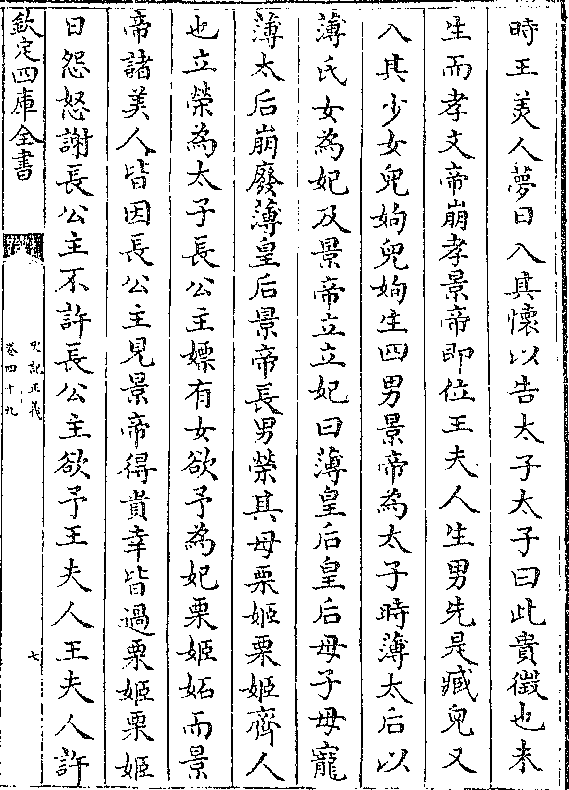 時王美人夢日入其懷以告太子太子曰此貴徵也未
生而孝文帝崩孝景帝即位王夫人生男先是臧兒又
入其少女兒姁兒姁生四男景帝為太子時薄太后以
薄氏女為妃及景帝立立妃曰薄皇后皇后母子母寵
薄太后崩廢薄皇后景帝長男榮其母栗姬栗姬齊人
也立榮為太子長公主嫖有女欲予為妃栗姬妬而景
帝諸美人皆因長公主見景帝得貴幸皆過栗姬栗姬
日怨怒謝長公主不許長公主欲予王夫人王夫人許
欽定四庫全書
史記正義
卷四十九
七